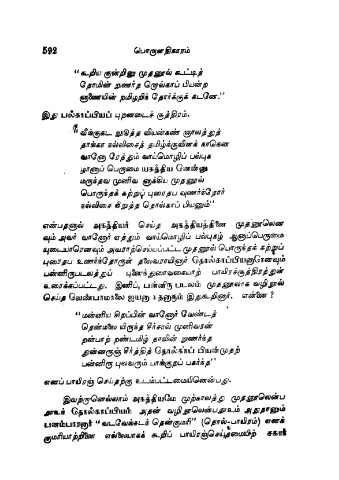 592 பொருளதிகாரம்
“கூறிய குன்றினு முதனூல் கூட்டித்
தோமின் றுணர்த றொல்காப் பியன்ற
னாணையின் தமிழறிந் தோர்க்குக் கடனே.”
இது பல்காப்பியப் புறனடைச் சூத்திரம்.
“வீங்குகட லுடுத்த வியன்கண் ஞாலத்துத்
தாங்கா நல்லிசைத் தமிழ்க்குவிளக் காகென
வானோ ரேத்தும் வாய்மொழிப் பல்புக
ழானாப் பெருமை யகத்திய னென்னு
மருந்தவ முனிவ னாக்கிய முதனூல்
பொருந்தக் கற்றுப் புரைதப வுணர்ந்தோர்
நல்லிசை நிறுத்த தொல்காப் பியனும்”
என்பதனால் அகத்தியர் செய்த அகத்தியத்தினை முதனூலென
வும் அவர் வானோர் ஏத்தும் வாய்மொழிப் பல்புகழ் ஆனாப்பெருமை
யுடையாரெனவும் அவராற்செய்யப்பட்ட முதனூல் பொருந்தக் கற்றுப்
புரைதப உணர்ந்தோருள் தலைவராயினார் தொல்காப்பியனாரெனவும்
பன்னிருபடலத்துப் புனைந்துரைவகையாற் பாயிரச்சூத்திரத்துள்
உரைக்கப்பட்டது. இனிப், பன்னிரு படலம் முதனூலாக வழிநூல்
செய்த வெண்பாமாலை ஐயனாரிதனாரும் இதுகூறினார். என்னை ?
“மன்னிய சிறப்பின் வானோர் வேண்டத்
தென்மலை யிருந்த சீர்சால் முனிவரன்
றன்பாற் றண்டமிழ் தாவின் றுணர்ந்த
துன்னருஞ் சீர்த்தித் தொல்காப் பியன்முதற்
பன்னிரு புலவரும் பாங்குறப் பகர்ந்த”
எனப் பாயிரஞ் செய்தற்கு உடம்பட்டமையினென்பது.
இவற்றானெல்லாம் அகத்தியமே முற்காலத்து முதனூலென்ப
தூஉம் தொல்காப்பியம் அதன் வழிநூலென்பதூஉம் அதுதானும்
பனம்பாரனார் “வடவேங்கடந் தென்குமரி” (தொல்-பாயிரம்) எனக்
குமரியாற்றினை எல்லையாகக் கூறிப் பாயிரஞ்செய்தமையிற் சகரர்